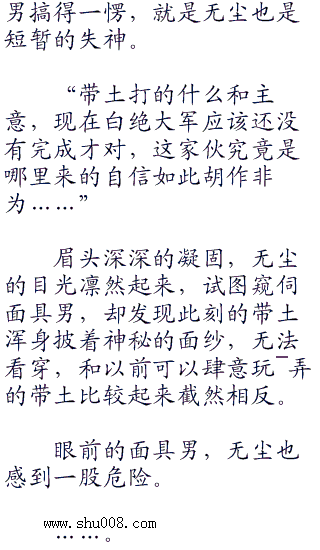 男搞得一愣，就是无尘也是
短暂的失神。
“带土打的什么和主
意，现在白绝大军应该还没
有完成才对，这家伙究竟是
哪里来的自信如此胡作非
为……”
眉头深深的凝固，无尘
的目光凛然起来，试图窥伺
面具男，却发现此刻的带土
浑身披着神秘的面纱，无法
看穿，和以前可以肆意玩¯弄
的带土比较起来截然相反。
眼前的面具男，无尘也
感到一股危险。
www.shu008.com
……。